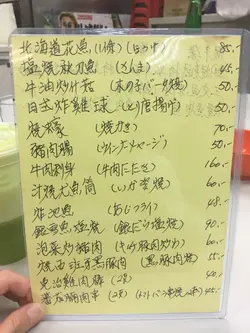 北海道花魚(1條) (ほっけ) 85.-
塩燒放刀魚 (さんま) 45.-
牛油炒什菇 (木の子バター焼) 50.-
日式炸雞球 (とり唐揚げ) 50.-
燒蠔 (焼カキ) 70.-
豬肉腸 (ウィンナーソーセージ) 50.-
牛肉刺身 (牛肉たたき) 160.-
汁燒尤魚筒 (いか姿焼) 60.-
炸池魚 (あじフライ) 48.-
銀雪魚塩燒 (銀だら塩焼) 90.-
泡菜炒豬肉 (キムチ豚肉炒め) 60.-
燒西班牙黑豚肉 (黒豚肉焼) 55.-
免治雞肉 (2串) 40.-
番茄豚肉串 (2串) 45.-